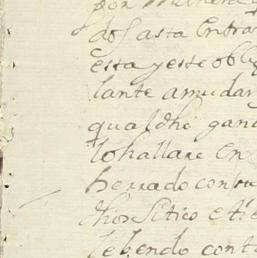 por
dos asta entra
esta y este obli
lante a mudar
qual dho gana
lo hallare en
herrado con su
dhos sitio e tie
le bendo cont